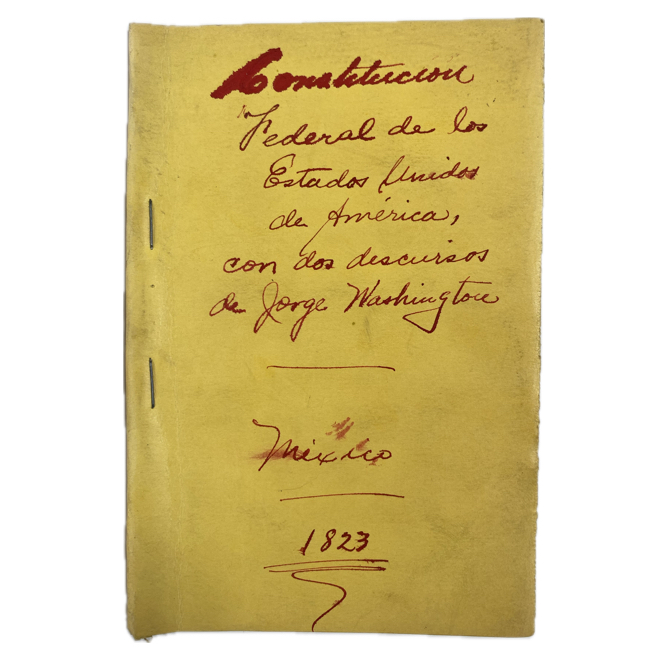 Constitucion
Federal de los
Estados Unidos
de América,
con dos discursos
de Jorge Washington
México
1823